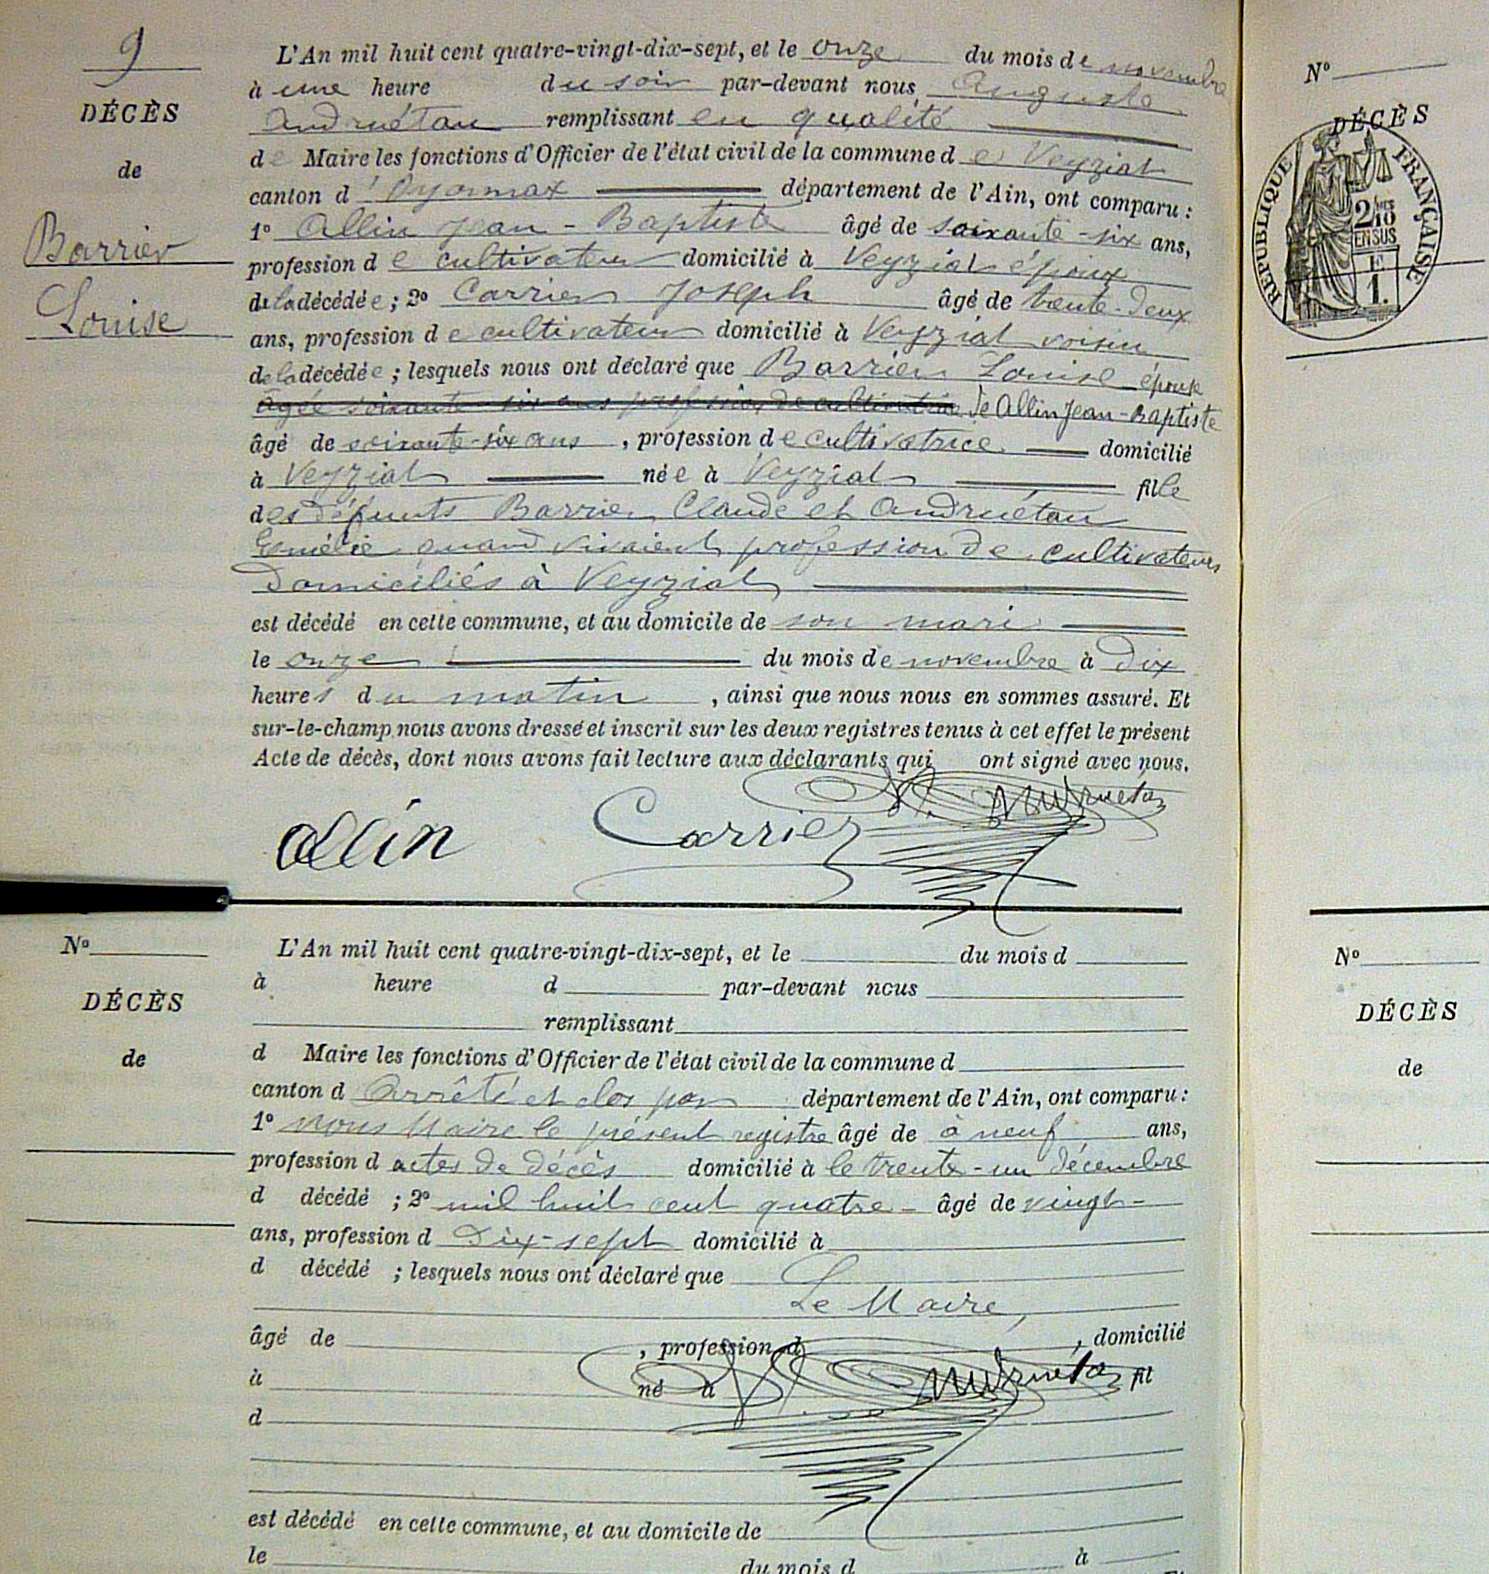 9
DÉCÈS
de
Barrier
Louise
L'An mil huit cent quatre-vingt-dix-sept, et le onze du mois de novembre
à une heure du soir par-devant nous Auguste
Andruétan remplissant en qualité
de Maire les fonctions d'Officier de l'état civil de la commune de Veyziat
canton d'Oyonnax département de l'Ain, ont comparu :
1° Allin Jean-Baptiste âgé de soixante-six ans,
profession de cultivateur domicilié à Veyziat époux
de la décédée ; 2° Carrier Joseph âgé de trente-deux
ans, profession de cultivateur domicilié à Veyziat voisin
de la décédée ; lesquels nous ont déclaré que Barrier Louise épouse
Agée soixante-six ans profession de cultivatrice de Allin Jean-Baptiste
âgé de soixante-six ans , profession de cultivatrice domicilié
à Veyziat née à Veyziat fille
des défunts Barrier Claude et Andruétan
Esmélie quand vivaient profession de cultivateurs
Domiciliés à Veyziat
est décédé en cette commune, et au domicile de son mari
le onze du mois de novembre à dix
heures du matin , ainsi que nous nous en sommes assuré. Et
sur-le-champ nous avons dressé et inscrit sur les deux registres tenus à cet effet le présent
Acte de décès, dont nous avons fait lecture aux déclarants qui ont signé avec nous.
Allin Carrier Andruétan
N°
DÉCÈS
de
L'An mil huit cent quatre-vingt-dix-sept, et le du mois d
à heure d par-devant nous
remplissant
d Maire les fonctions d'Officier de l'état civil de la commune d
canton d Arrêté et clos par département de l'Ain, ont comparu :
1° Nous Maire le présent registre âgé de à neuf ans,
profession d actes de décès domicilié à le trente-un décembre
d décédé ; 2° mil huit cent quatre- âgé de vingt-
ans, profession d Dix-sept domicilié à
d décédé ; lesquels nous ont déclaré que
Le Maire,
âgé de , profession d , domicilié
à né à Andruétan fil
d
est décédé en cette commune, et au domicile de
le du mois d à
N°
DÉCÈS
RÉPUBLIQUE FRANÇAISE
2/10
EN SUS
1.
N°
DÉCÈS
de